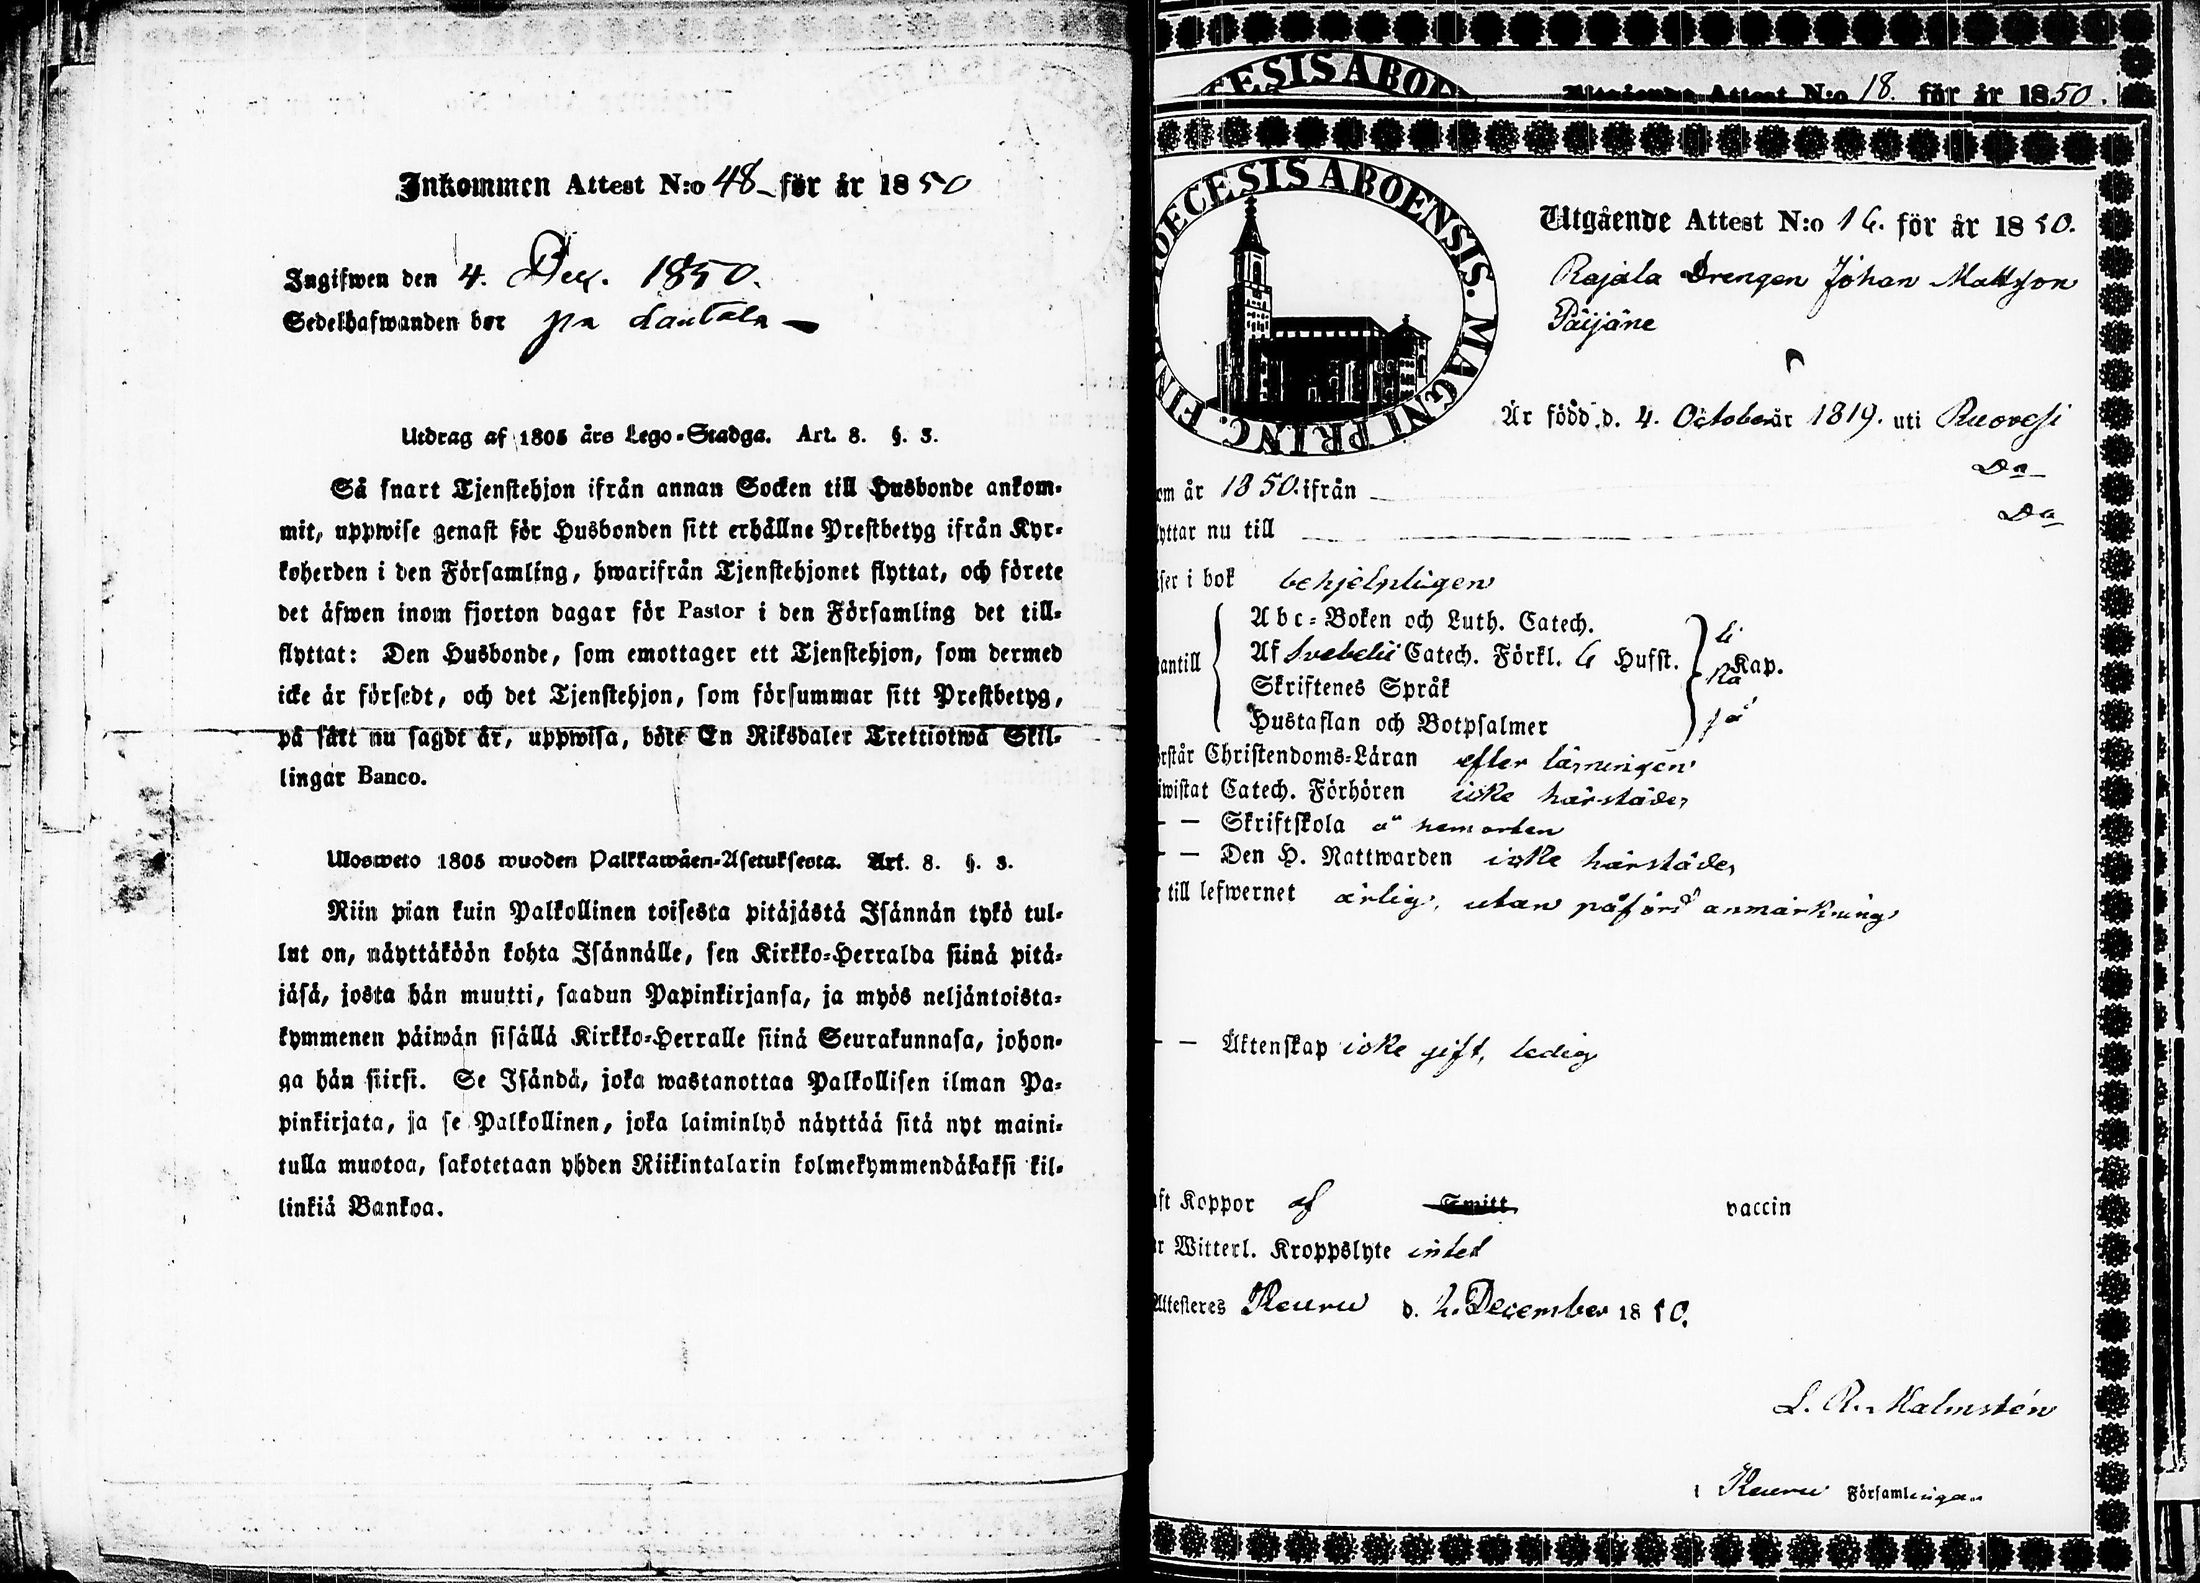 Inkommen Attest N:o 48 för år 1850
Ingifwen den 4. Dec. 1850.
Sedelhafwanden bor på Lautala
Utdrag af 1805 års Lego-Stadga. Art. 8. §. 3.
Så snart Tjenstehjon ifrån annan Socken till Husbonde ankom-
mit, uppwise genast för Husbonden sitt erhållne Prestbetyg ifrån Kyr-
koherden i den Församling, hwarifrån Tjenstehjonet flyttat, och förete
det äfwen inom fjorton dagar för Pastor i den Församling det till-
flyttat: Den Husbonde, som emottager ett Tjenstehjon, som dermed
icke är försedt, och det Tjenstehjon, som försummar sitt Prestbetyg,
på sätt nu sagdt är, uppwisa, böte En Riksdaler Trettiotwå Skil-
lingar Banco.
Ulosweto 1805 wuoden Palkkawäen-Asetuksesta. Art. 8. §. 3.
Niin pian kuin Palkollinen toisesta pitäjästä Isännän tykö tul-
lut on, näyttäköön kohta Isännälle, sen Kirkko-Herralda siinä pitä-
jäsä, josta hän muutti, saadun Papinkirjansa, ja myös neljäntoista-
kymmenen päiwän sisällä Kirkko-Herralle siinä Seurakunnasa, johon-
ga hän siirsi. Se Isändä, joka wastanottaa Palkollisen ilman Pa-
pinkirjata, ja se Palkollinen, joka laiminlyö näyttää sitä nyt maini-
tulla muotoa, sakotetaan yhden Riikintalarin kolmekymmendäkaksi kil-
linkiä Bankoa.
ECESIS ABOE
Utgående Attest N:o 18. för år 1850.
DIOECESIS ABOENSIS. MAGNI PRINC. FIN
Utgående Attest N:o 16. för år 1850.
Rajala Drengen Johan Mattsson
Päijäne
Är född d. 4. October år 1819. uti Ruovesi
om år 1850. ifrån Do
lyttar nu till Do
ser i bok behjelpligen
Abc-Boken och Luth. Catech.
antill Af Svebelii Catech. Förkl. 6 Hufst. Kap.
Skriftenes Språk
Hustaflan och Botpsalmer
rstår Christendoms-Läran efter läsningen
iwistat Catech. Förhören icke härstädes
- - Skriftskola å hemorten
- - Den H. Nattwarden icke härstädes
till lefwernet ärlig, utan påförd anmärkning
- - Äktenskap icke gift, ledig
ft Koppor af vaccin
r Witterl. Kroppslyte intet
Attesteres Keuru d. 2. December 1850.
L. R. Malmstén
i Keuru Församlingen